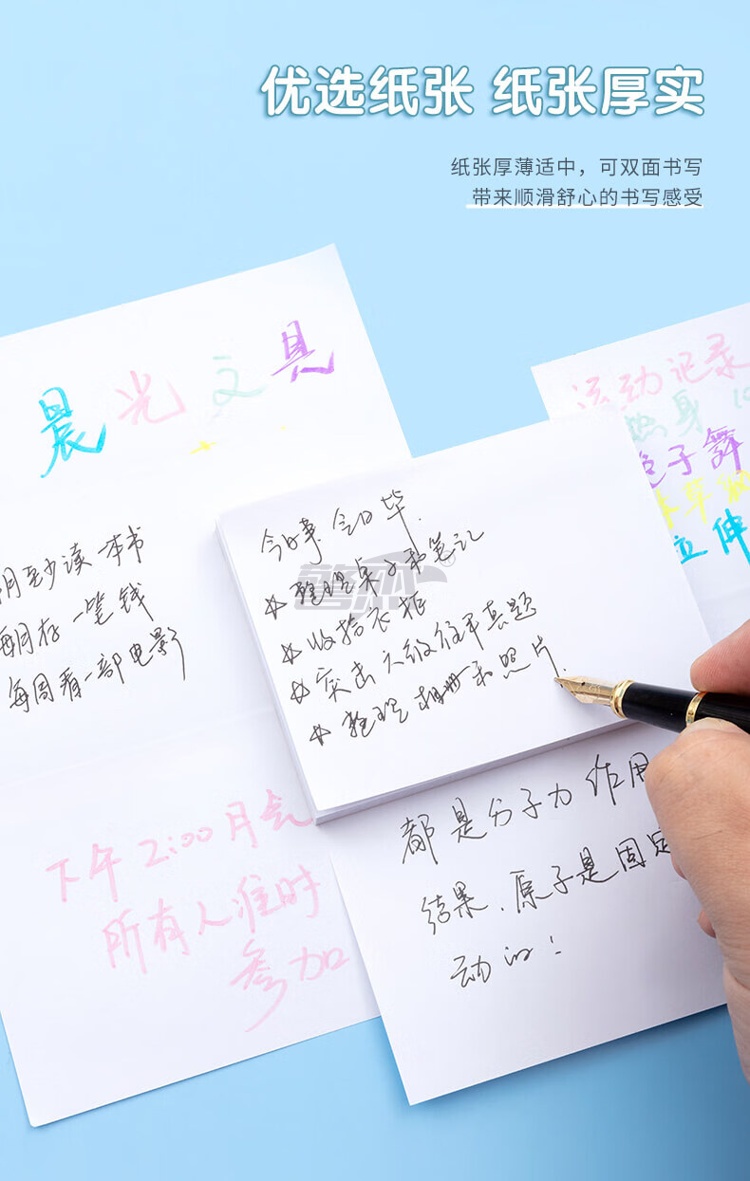 优选纸张 纸张厚实
纸张厚薄适中，可双面书写
带来顺滑舒心的书写感受
晨光文具
月至少读一本书
每月存一笔钱
每周看一部电影
今日事 今日毕.
整理桌子和笔记
收拾衣柜
突击六级往年真题
整理相册和照片.
运动记录
热身
子舞
拉伸
下午2:00月会
所有人准时
参加
都是分子力作用
结果、原子是固定
动的！